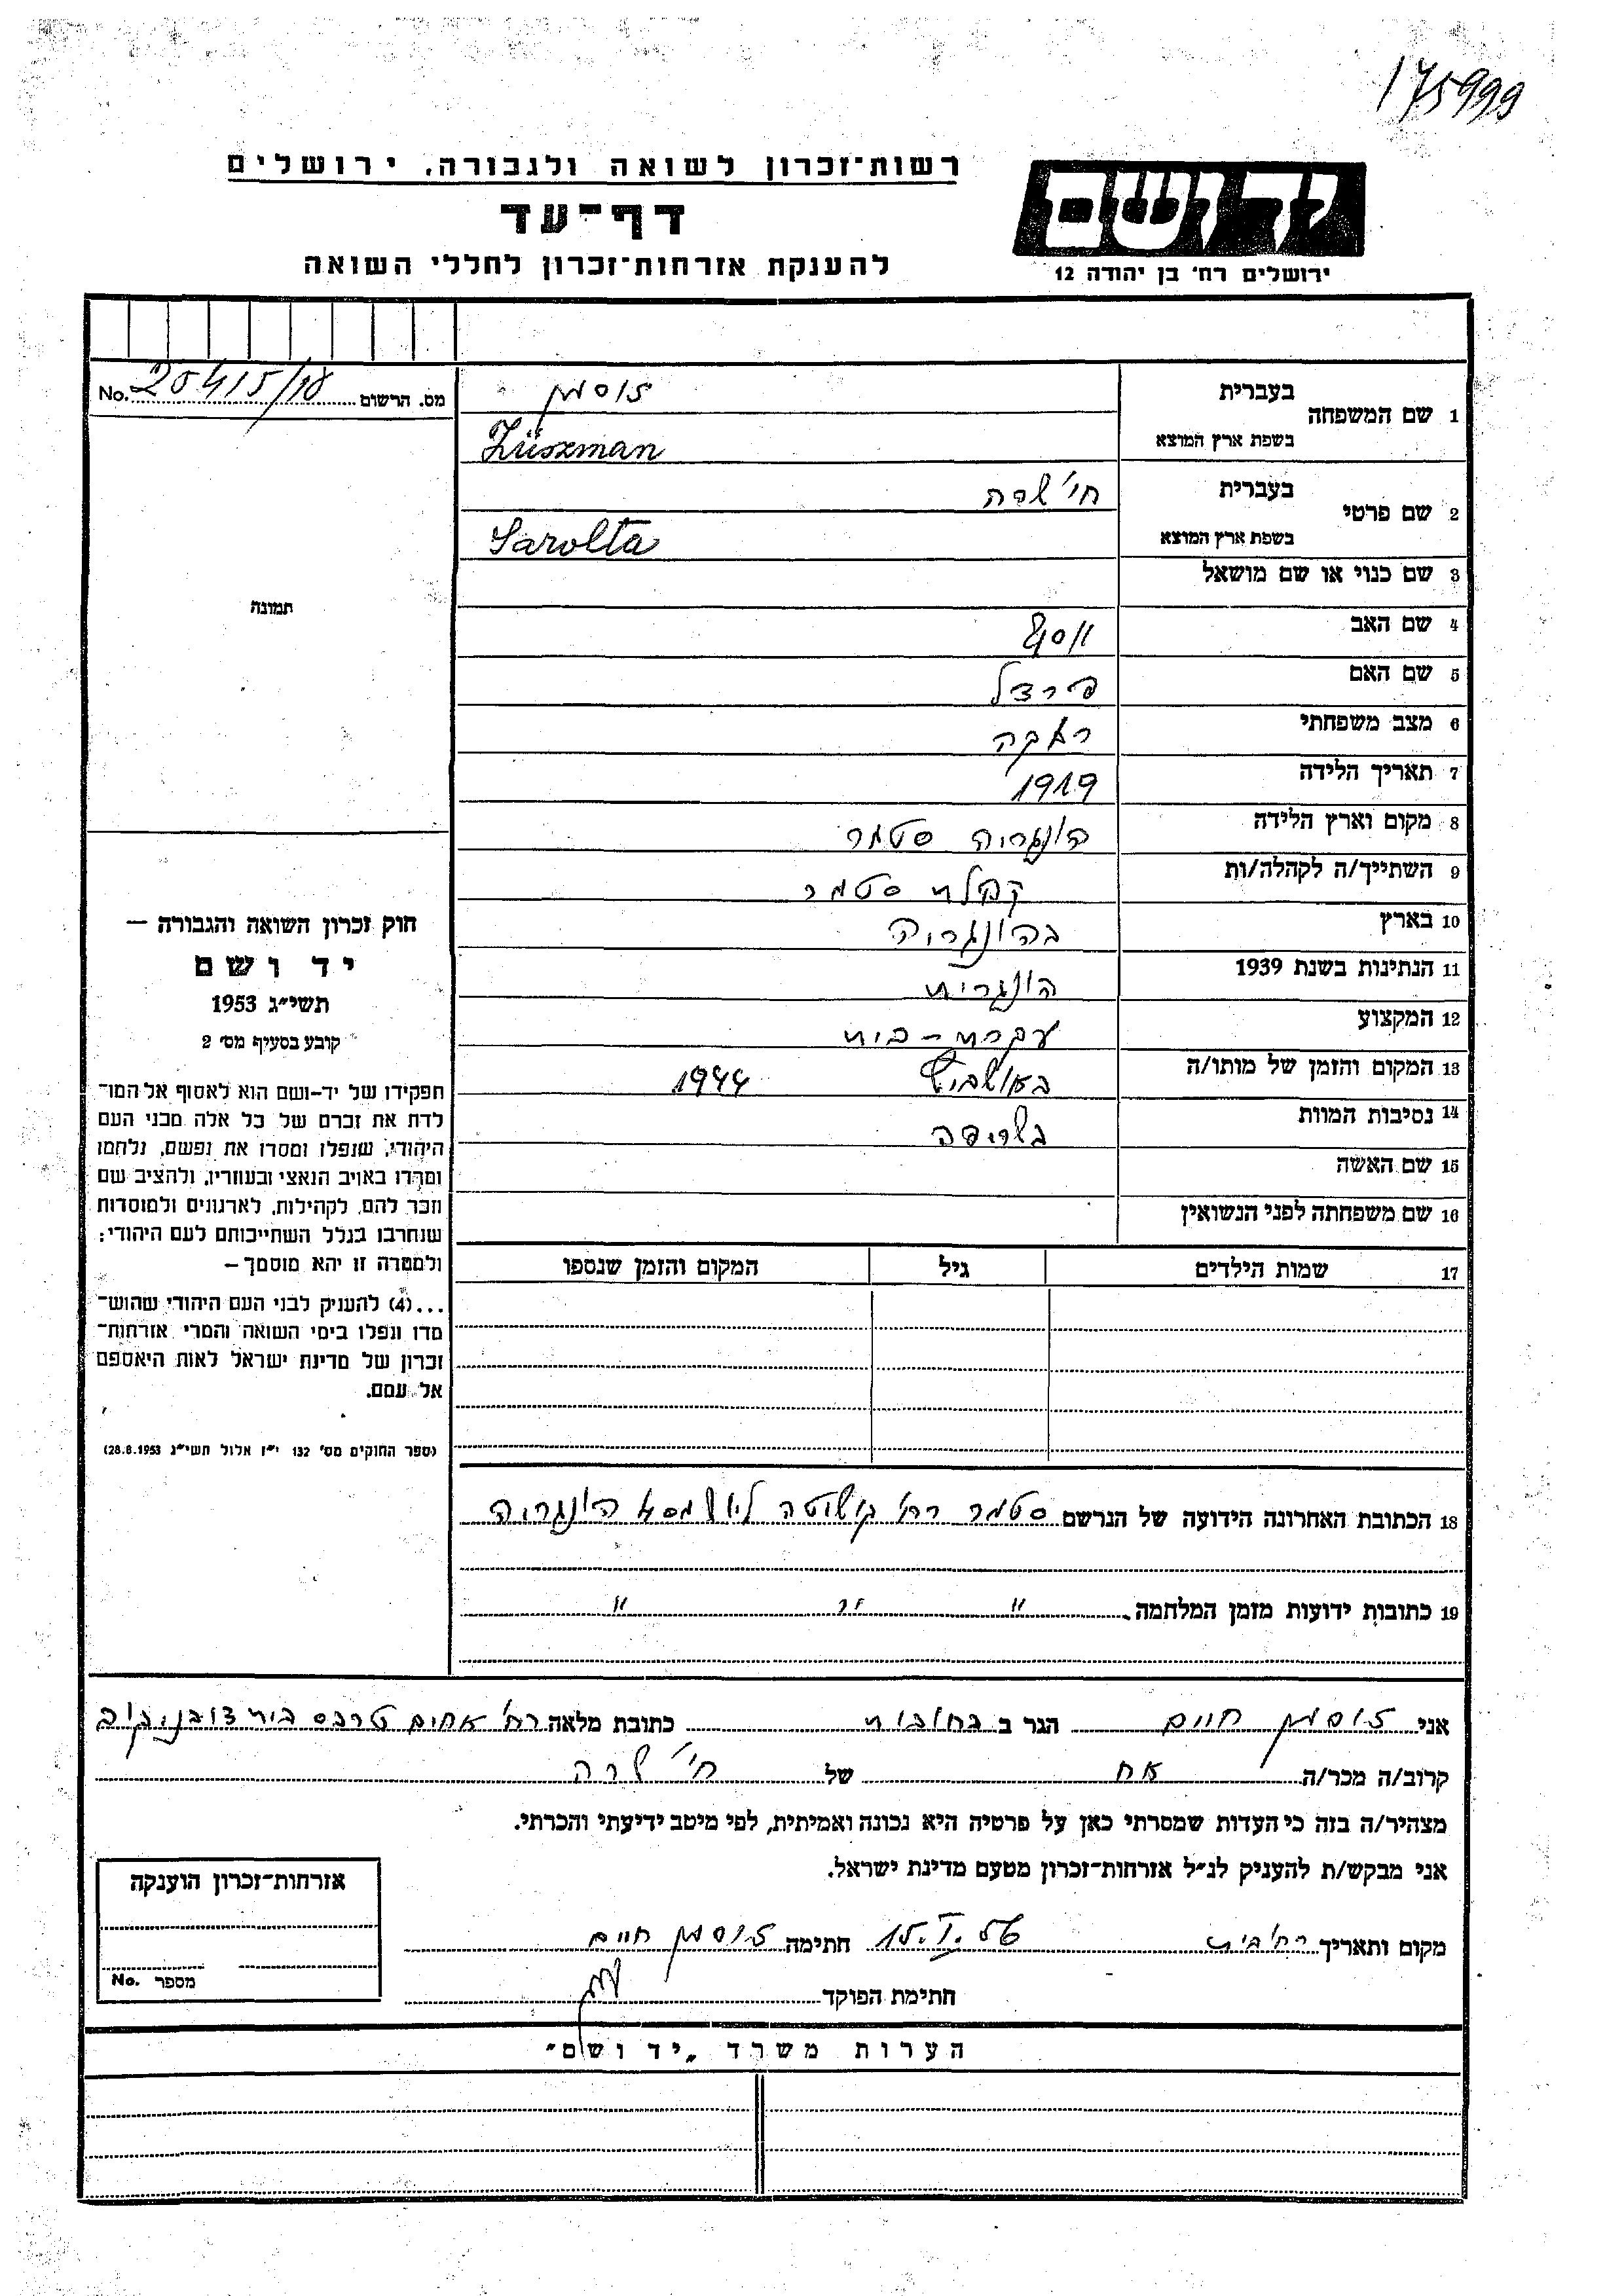 175999
רשות־זכרון לשואה ולגבורה, ירושלים
יד ושם
דף־עד
להענקת אזרחות־זכרון לחללי השואה
ירושלים רח' בן יהודה 12
מס. הרשום 20415/18 No.
1 שם המשפחה
בעברית זוסמן
בשפת ארץ המוצא Züszman
2 שם פרטי
בעברית חי' שרה
בשפת ארץ המוצא Sarolta
3 שם כנוי או שם מושאל
תמונה
4 שם האב יוסף
5 שם האם פרצל
6 מצב משפחתי רוקה
7 תאריך הלידה 1919
8 מקום וארץ הלידה הונגריה סטמר
9 השתייך/ה לקהלה/ות קהלת סטמר
10 בארץ בהונגריה
11 הנתינות בשנת 1939 הונגרית
12 המקצוע עקרת-בית
13 המקום והזמן של מותו/ה באושביץ 1944
14 נסיבות המוות בשריפה
15 שם האשה
16 שם משפחתה לפני הנשואין
17 שמות הילדים גיל המקום והזמן שנספו
חוק זכרון השואה והגבורה —
יד ושם
תשי״ג 1953
קובע בסעיף מס' 2
תפקידו של יד-ושם הוא לאסוף אל המו־
לדת את זכרם של כל אלה מבני העם
היהודי, שנפלו ומסרו את נפשם, נלחמו
ומרדו באויב הנאצי ובעוזריו, ולהציב שם
וזכר להם, לקהילות, לארגונים ולמוסדות
שנחרבו בגלל השתייכותם לעם היהודי;
ולמטרה זו יהא מוסמך —
...(4) להעניק לבני העם היהודי שהוש־
מדו ונפלו בימי השואה והמרי אזרחות־
זכרון של מדינת ישראל לאות היאספם
אל עמם.
(ספר החוקים מס' 132 י״ז אלול תשי״ג 28.8.1953)
18 הכתובת האחרונה הידועה של הנרשם סטמר רח' הונגריה
19 כתובות ידועות מזמן המלחמה " " "
אני זוסמן חיים הגר ב רחובות כתובת מלאה רח' אחים טרבס בית
קרוב/ה מכר/ה אח של חי' שרה
מצהיר/ה בזה כי העדות שמסרתי כאן על פרטיה היא נכונה ואמיתית, לפי מיטב ידיעתי והכרתי.
אני מבקש/ת להעניק לנ״ל אזרחות־זכרון מטעם מדינת ישראל.
מקום ותאריך רחובות 15.I.56 חתימה זוסמן חיים
חתימת הפוקד
אזרחות־זכרון הוענקה
מספר No.
הערות משרד „יד ושם"